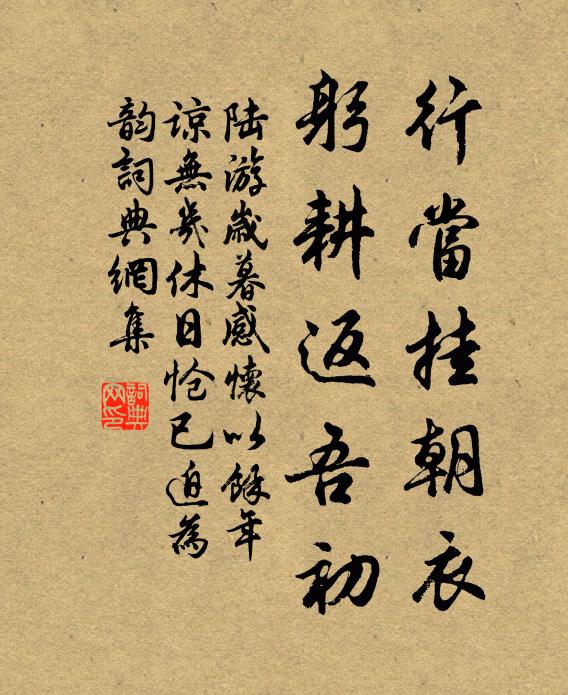 行當挂朝衣
躬耕返吾初
陆游嵗暮感懷以餘年
諒無幾休日怆已迫為
韵詞典網集
詞典網印